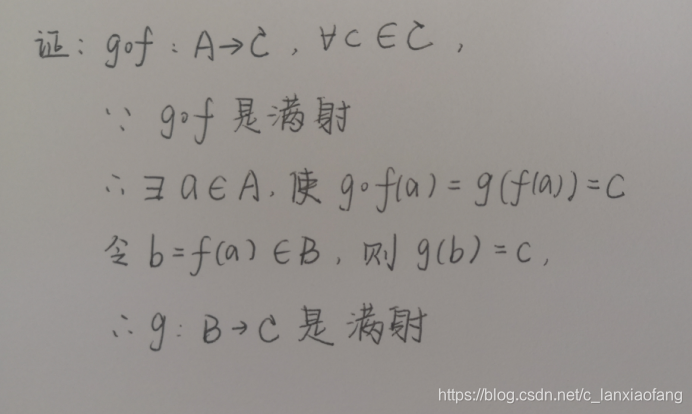 证: g∘f : A→C , ∀c∈C ,
∵ g∘f 是满射
∴ ∃ a∈A, 使 g∘f(a) = g(f(a)) = c
令 b = f(a) ∈ B , 则 g(b) = c ,
∴ g : B→C 是满射
https://blog.csdn.net/c_lanxiaofang